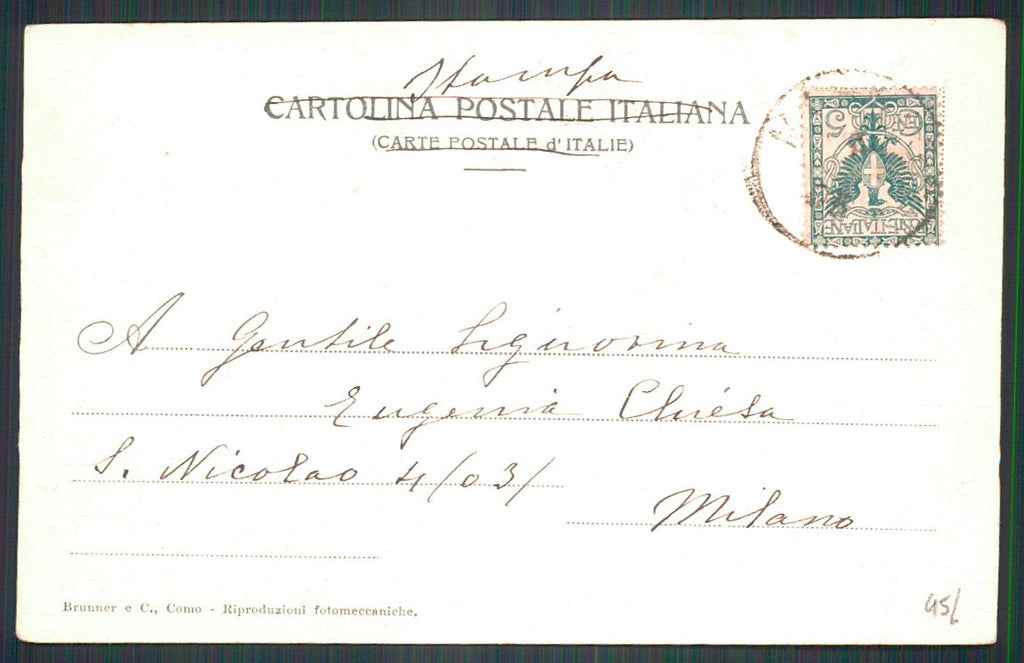 Stampa
CARTOLINA POSTALE ITALIANA
(CARTE POSTALE d'ITALIE)
CEN 5
POSTE-ITALIANE
A Gentile Signorina
Eugenia Chiesa
S. Nicolao 4/03/
Milano
Brunner e C., Como - Riproduzioni fotomeccaniche.
45/